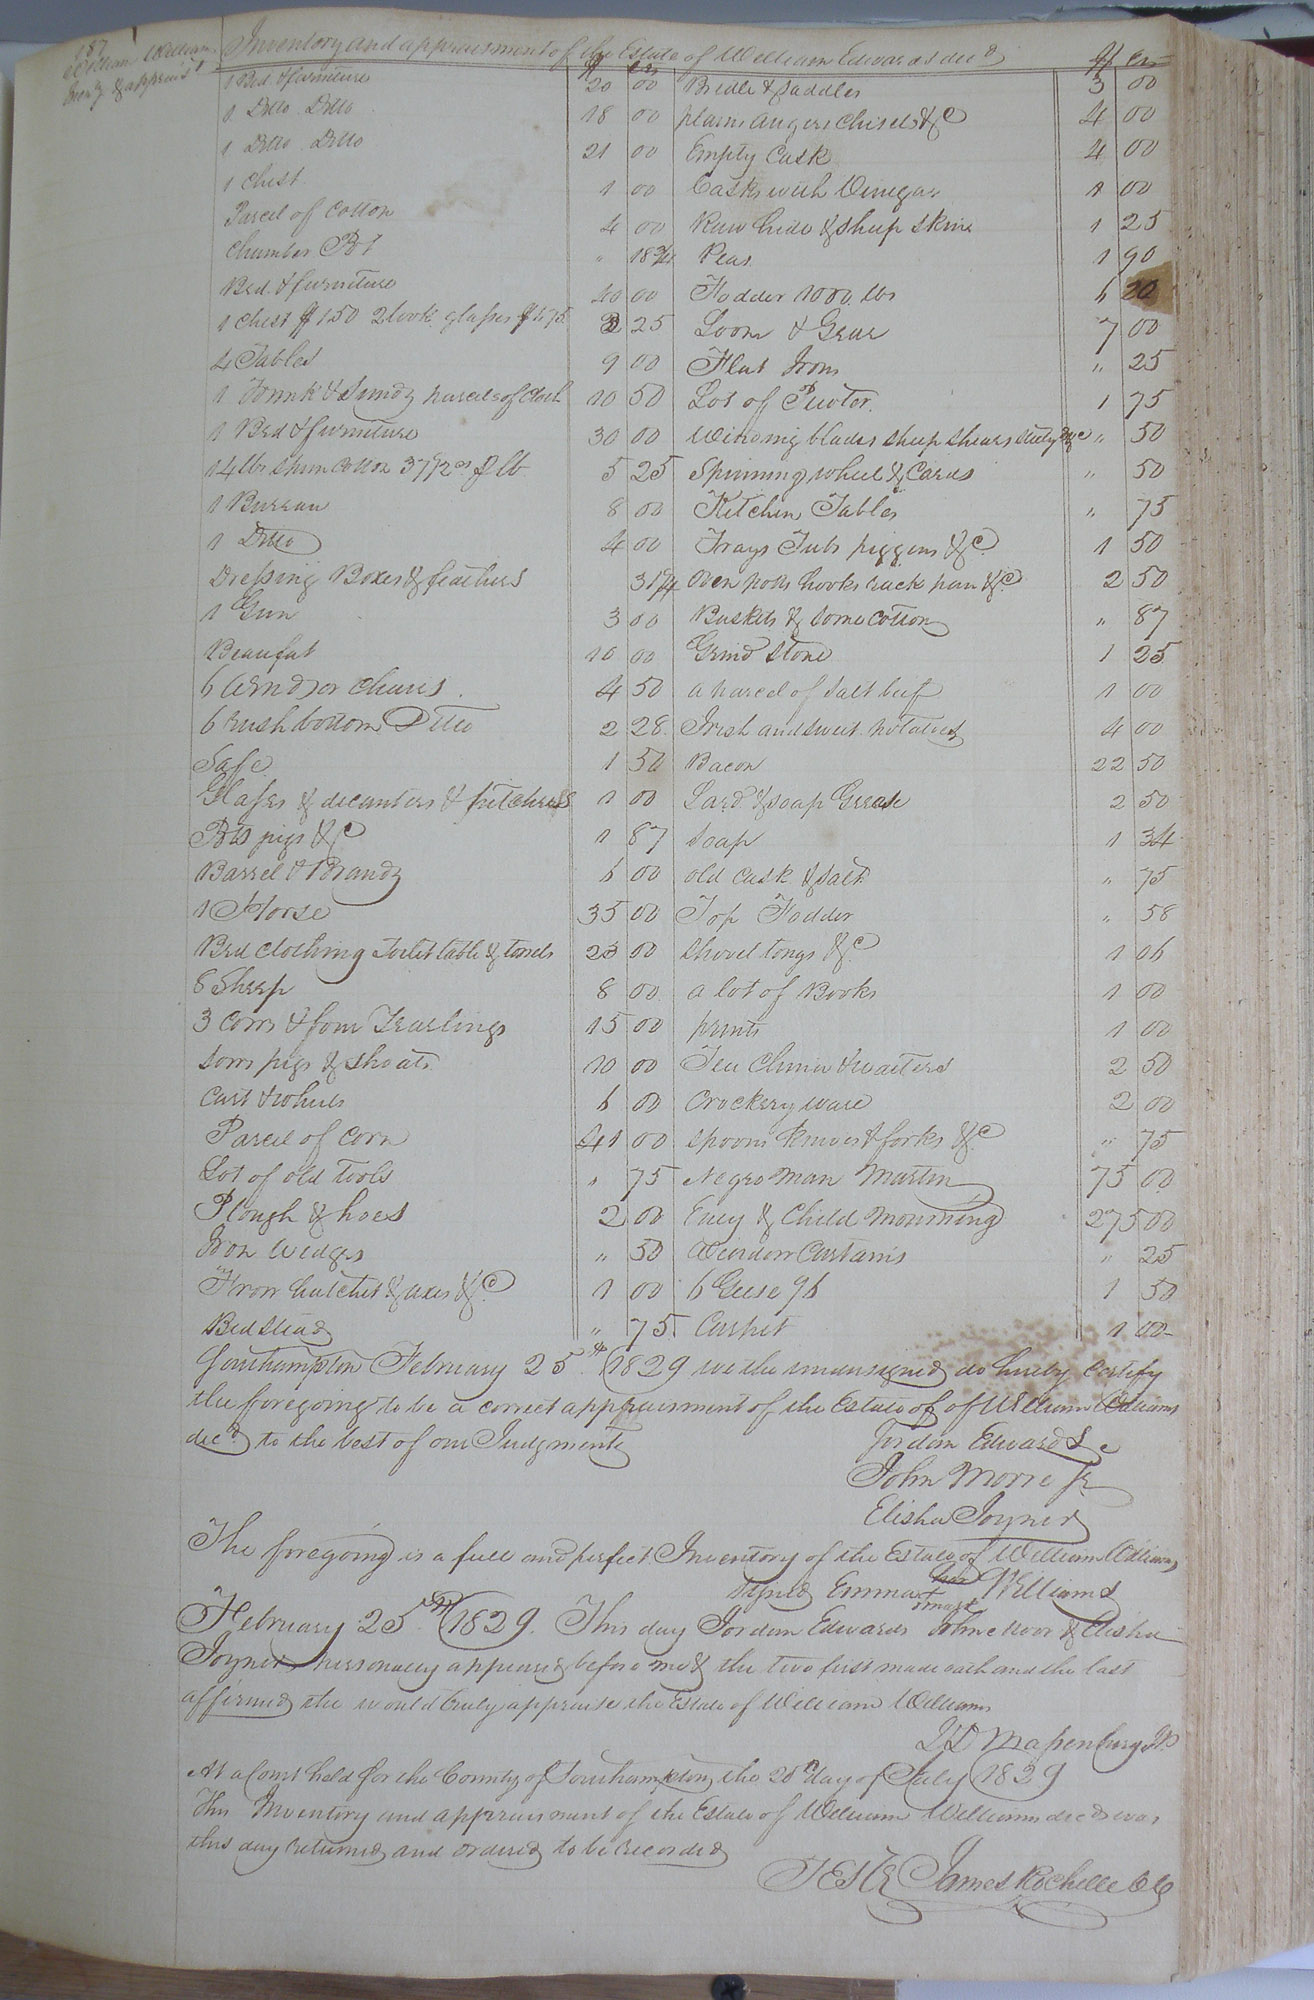 187
William William
Inv.y & apprais.t
Inventory and appraisment of the Estate of William Edwards dec.d
$ cts
$ cts
1 Bed & furniture 20 00
1 Ditto Ditto 18 00
1 Ditto Ditto 21 00
1 Chest 1 00
Parcel of Cotton 4 00
Chamber Pot " 18 3/4
Bed & furniture 40 00
1 Chest $1.50 2 look glasses $ 75 2 25
4 Tables 9 00
1 Trunk & Sundy parcels of Cloth 10 50
1 Bed & furniture 30 00
14 lbs Spun Cotton 37 1/2 cs p lb 5 25
1 Bureau 8 00
1 Ditto 4 00
Dressing Boxes & feathers 31 1/4
1 Gun 3 00
Beaufat 10 00
6 Windsor Chairs 4 50
6 rush bottom Ditto 2 28
Safe 1 50
Glasses & decanters & pitchers 1 00
Pots pigs &c 1 87
Barrel & Brandy 6 00
1 Horse 35 00
Bed clothing Toilet table & towels 23 00
8 Sheep 8 00
3 Cows & four Yearlings 15 00
Sows pigs & shoats 10 00
Cart & wheels 6 00
Parcel of Corn 41 00
Lot of old tools " 75
Plough & hoes 2 00
Iron Wedges " 50
Frow hatchet & axes &c 1 00
Bedstead " 75
Bridle & Saddles 3 00
plains augers Chisels &c 4 00
Empty Cask 4 00
Casks with Vinegar 1 00
Raw hide & sheep skins 1 25
Peas 1 90
Fodder 1000 lbs 6 20
Loom & Gear 7 00
Flat Irons " 25
Lot of Pewter 1 75
Winding blades sheep shears &c " 50
Spinning wheel & Cards " 50
Kitchen Tables " 75
Trays Tubs piggins &c 1 50
Oven potts hooks rack pan &c 2 50
Baskets & some cotton " 87
Grind Stone 1 25
a parcel of salt beef 1 00
Irish and sweet potatoes 4 00
Bacon 22 50
Lard & soap Grease 2 50
Soap 1 34
old cask & salt " 75
Top Fodder " 58
Shovel tongs &c 1 06
a lot of Books 1 00
prints 1 00
Tea China & waiters 2 50
Crockery ware 2 00
Spoons knives & forks &c " 75
Negro man Martin 75 00
Eney & Child Mourning 275 00
Window Curtains " 25
6 Geese 9b 1 50
Carpet 1 00
Southampton February 25th 1829 we the undersigned do hereby Certify
the foregoing to be a correct appraisment of the Estate of of William Williams
dec.d to the best of our Judgments
Jordan Edwards
John Morre Jr
Elisha Joyner
The foregoing is a full and perfect Inventory of the Estate of William Williams
Signed Emma her mark Williams
February 25th 1829. This day Jordan Edwards John Moor & Elisha
Joyner personally appeared before me & the two first made oath and the last
affirmed the would truly appraise the Estate of William Williams
Massenburg Jp
At a Court held for the County of Southampton the 20th day of July 1829
This Inventory and appraisment of the Estate of William Williams dec.d was
this day returned and ordered to be recorded
TESTE James Rochelle CC